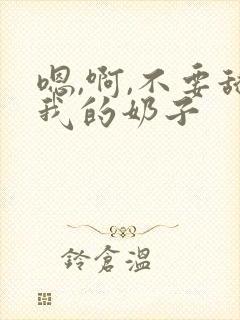 嗯,啊,不要舔
我的奶子
鈴倉溫